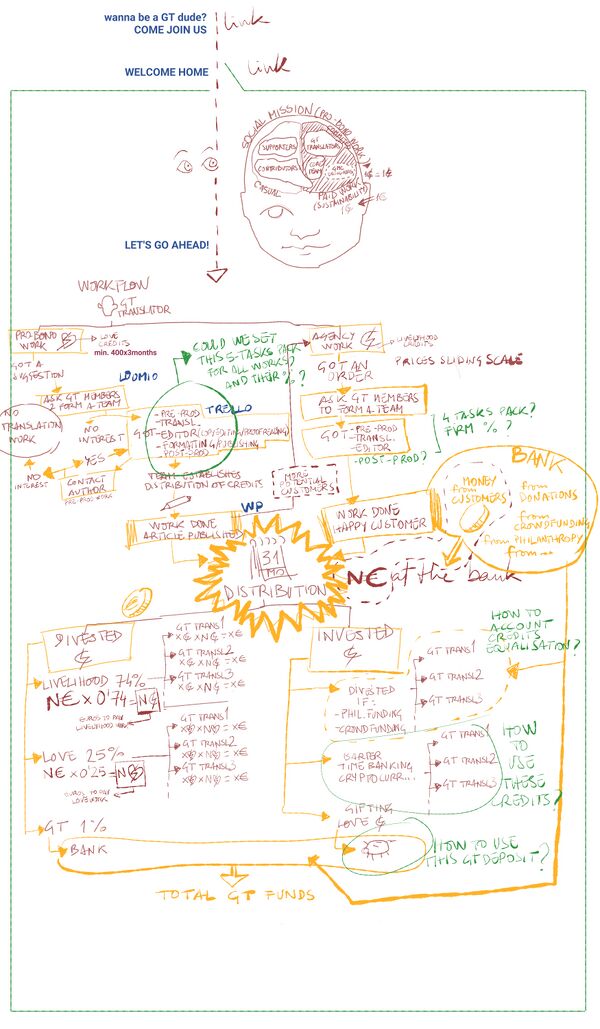 wanna be a GT dude?
COME JOIN US
link
WELCOME HOME
link
SOCIAL MISSION (PRO-BONO WORK)
SUPPORTERS
GT TRANSLATORS
CONTRIBUTORS
CORE TEAM
CASUAL
PAID WORK
(SUSTAINABILITY)
LET'S GO AHEAD!
WORKFLOW
GT
TRANSLATOR
PRO-BONO
WORK
LOVE
CREDITS
min. 400x3months
COULD WE SET
THIS 5-TASKS PACK
FOR ALL WORKS?
AND THEIR %?
AGENCY
WORK
LIVELIHOOD
CREDITS
PRICES SLIDING SCALE
GOT A
SUGGESTION
GOT AN
ORDER
LOOMIO
ASK GT MEMBERS
2 FORM A-TEAM
TRELLO
ASK GT MEMBERS
TO FORM A-TEAM
NO
TRANSLATION
WORK
NO
INTEREST
YES
NO
INTEREST
CONTACT
AUTHOR
PRE-PROD WORK
GOT
-PRE-PROD
-TRANSL.
-EDITOR (COPYEDITING/PROOFREADING)
-FORMATTING/PUBLISHING
-POST-PROD
GOT
-PRE-PROD
-TRANSL.
-EDITOR
-POST-PROD?
4 TASKS PACK?
FIRM %?
TEAM ESTABLISHES
DISTRIBUTION OF CREDITS
MORE
POTENTIAL
CUSTOMERS
BANK
MONEY
from
CUSTOMERS
from
DONATIONS
from
CROWDFUNDING
from PHILANTHROPY
from ...
WP
WORK DONE
ARTICLE PUBLISHED
WORK DONE
HAPPY CUSTOMER
31
MO
DISTRIBUTION
N€ at the bank
DIVESTED
INVESTED
HOW TO
ACCOUNT
CREDITS
EQUALISATION?
LIVELIHOOD 74%
N€ x 0'74 =
EUROS TO PAY
LIVELIHOOD WORK
GT TRANS1
GT TRANSL2
GT TRANSL3
DIVESTED
IF:
-PHIL.FUNDING
-CROWDFUNDING
GT TRANS1
GT TRANSL2
GT TRANSL3
LOVE 25%
N€ x 0'25 =
EUROS TO PAY
LOVE WORK
GT TRANS1
GT TRANSL2
GT TRANSL3
BARTER
TIME BANKING
CRYPTOCURR...
GT TRANS1
GT TRANSL2
GT TRANSL3
HOW
TO
USE
THESE
CREDITS?
GIFTING
LOVE
GT 1%
BANK
HOW TO USE
THIS GT DEPOSIT?
TOTAL GT FUNDS